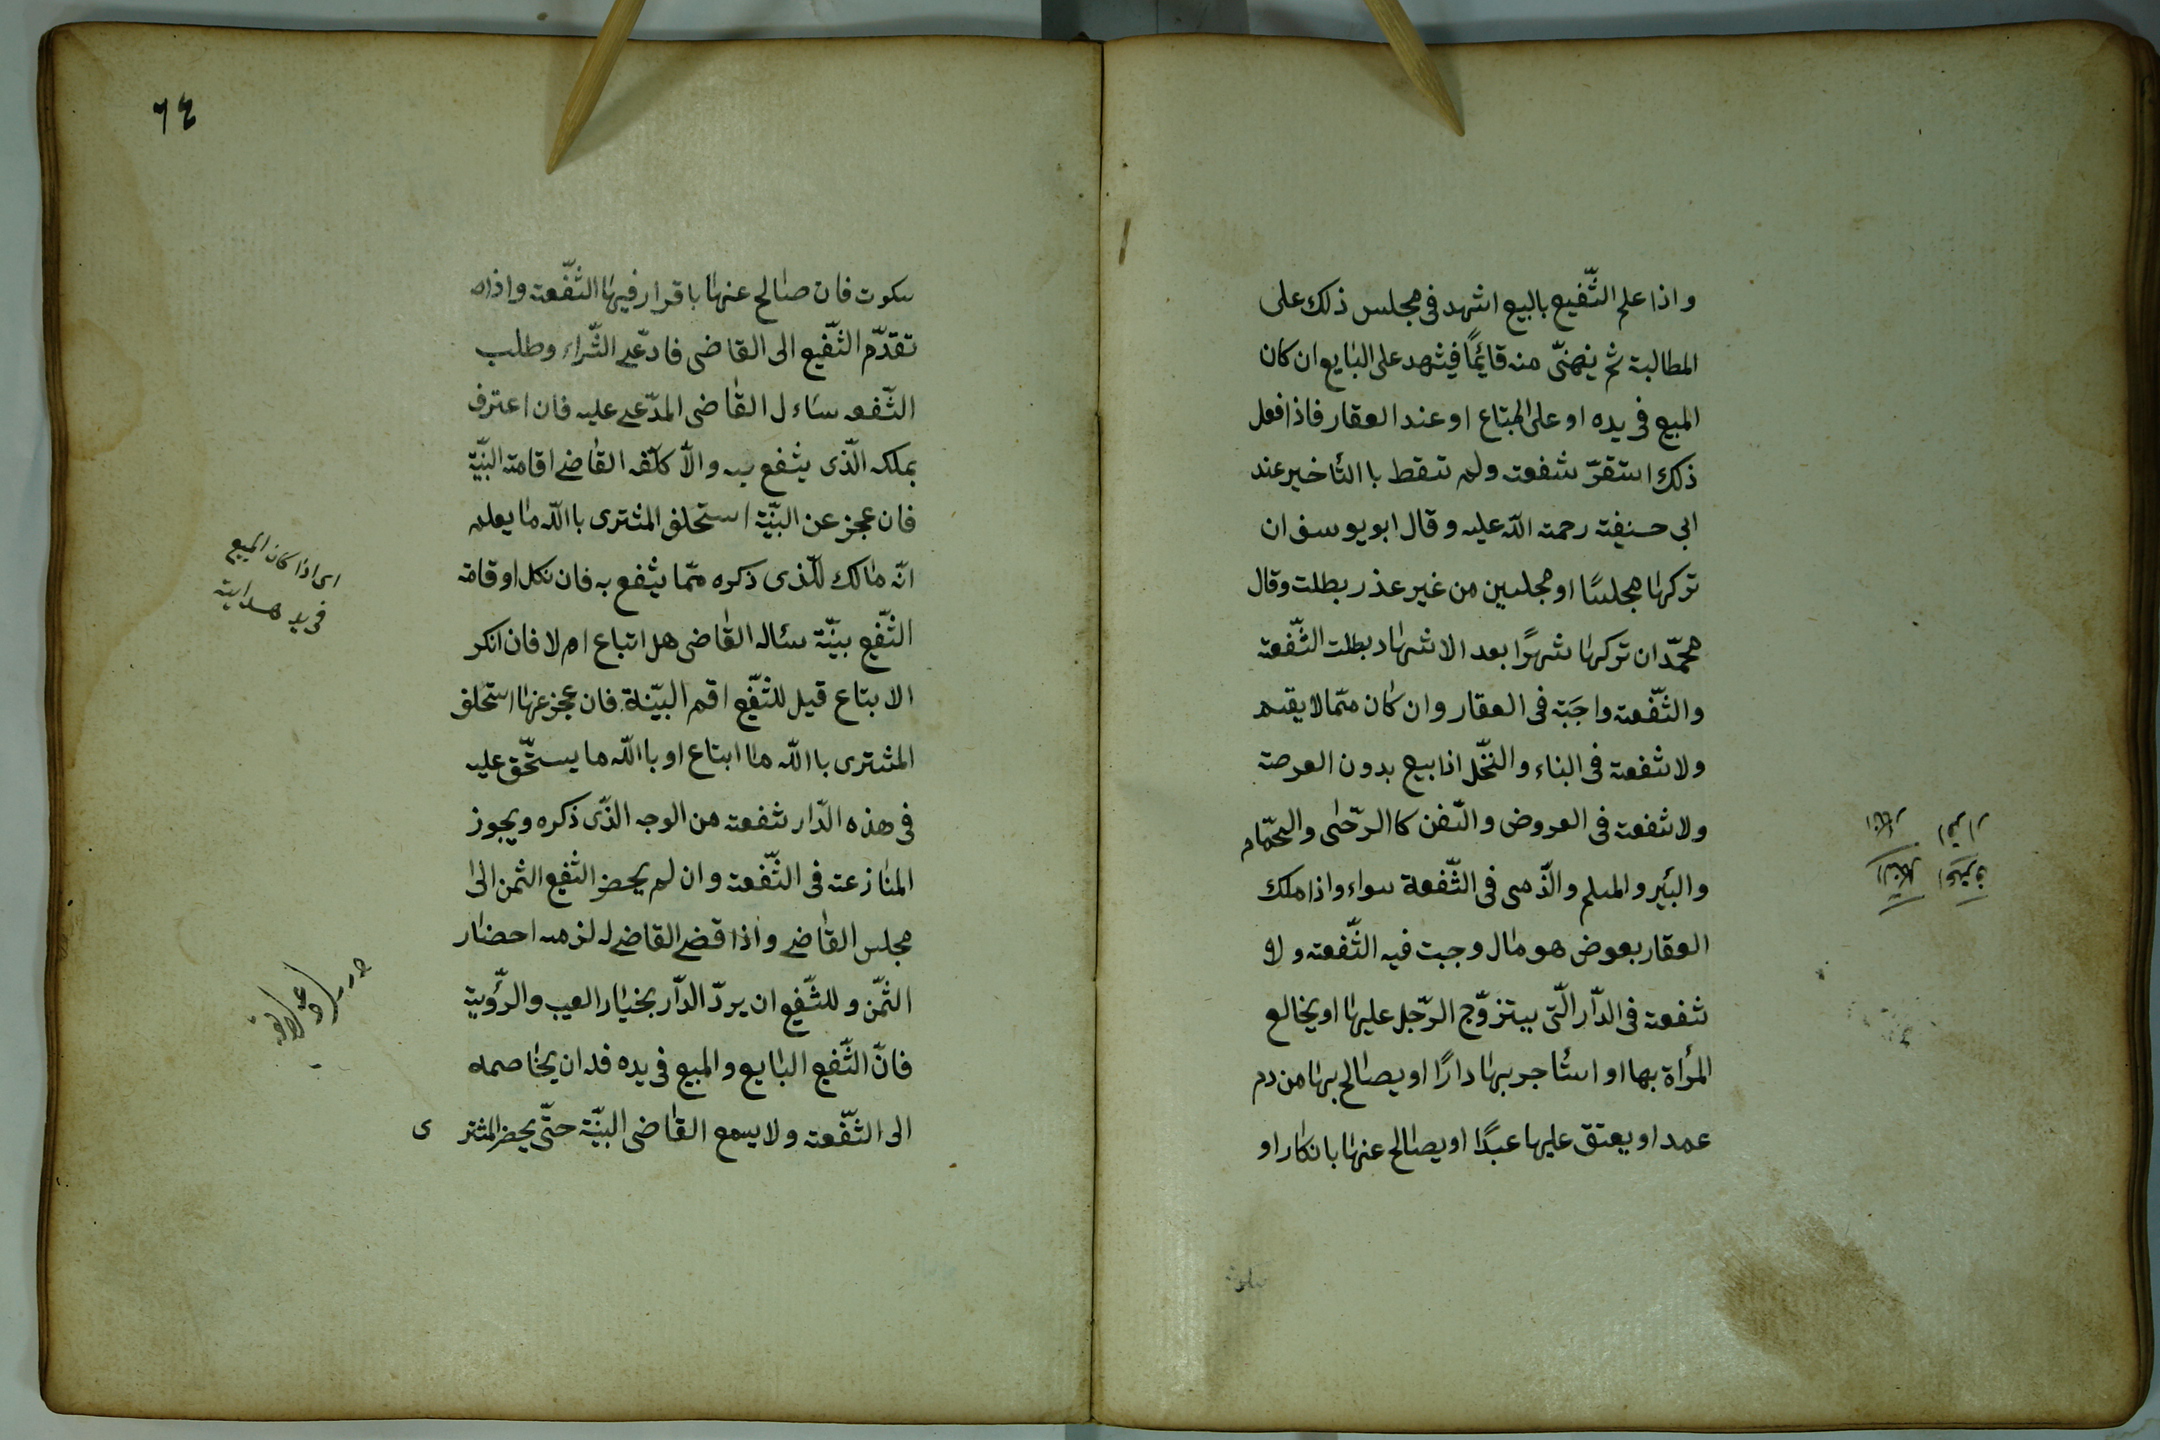 واذا علم الشّفيع بالبيع اشهد فى مجلس ذلك على
المطالبة ثم ينهض منه قايمًا فيشهد على البايع ان كان
المبيع فى يده او على المبتاع او عند العقار فاذا فعل
ذلك استقرّ شفعته ولم تسقط باالتأخير عند
ابى حنيفة رحمة اللّه عليه وقال ابو يوسف ان
تركها مجلسًا او مجلسين من غير عذر بطلت وقال
محمّد ان تركها شهرًا بعد الاشهاد بطلت الشّفعة
والشّفعة واجَبة فى العقار وان كان ممّا لا يقسم
ولا شفعة فى البناء والنّخل اذا بيع بدون العرصة
ولا شفعة فى العروض والسّفن كاالرّحٰى والحمّام
والبئر والمسلم والذّمى فى الشّفعة سواء واذا ملك
العقار بعوض هو مال وجبت فيه الشّفعة ولا
شفعة فى الدّار الّتى يتزوّج الرّجل عليها او يخالع
المرأة بها او استأجر بها دارًا او يصالح بها من دم
عمد او يعتق عليها عبدًا او يصالح عنها بانكار او
٦٤
سكوت فان صالح عنها باقرار فيها الشّفعة واذا
تقدّم الشّفيع الى القاضى فادّعى الشّراء وطلب
الشّفعه ساءل القاضى المدّعى عليه فان اعترف
بملكه الّذى يشفع به والاّ كلّفه القاضى اقامة البيّنة
فان عجز عن البيّنة استحلف المشترى باالله ما يعلم
انّه مالك للّذى ذكره ممّا يشفع به فان نكل او قامة
الشّفيع بيّنة سئاله القاضى هل ابتاع ام لا فان انكر
الابتاع قيل للشّفيع اقم البيّنة فان عجز عنها استحلف
المشترى باالله ما ابتاع او باالله ما يستحّق عليه
فى هذه الدّار شفعة من الوجه الذّى ذكره ويجوز
المنازعة فى الشّفعة وان لم يحضر الشفيع الثمن الى
مجلس القاضى واذا قضى القاضى له لزمه احضار
الثّمن وللشّفيع ان يردّ الدّار بخيار العيب والرّؤية
فانّ الشّفيع البايع والمبيع فى يده فله ان يخاصمه
الى الشّفعة ولا يسمع القاضى البيّنة حتّى يحضر المشتر ى
اى اذا كان المبيع
فى يد هداية